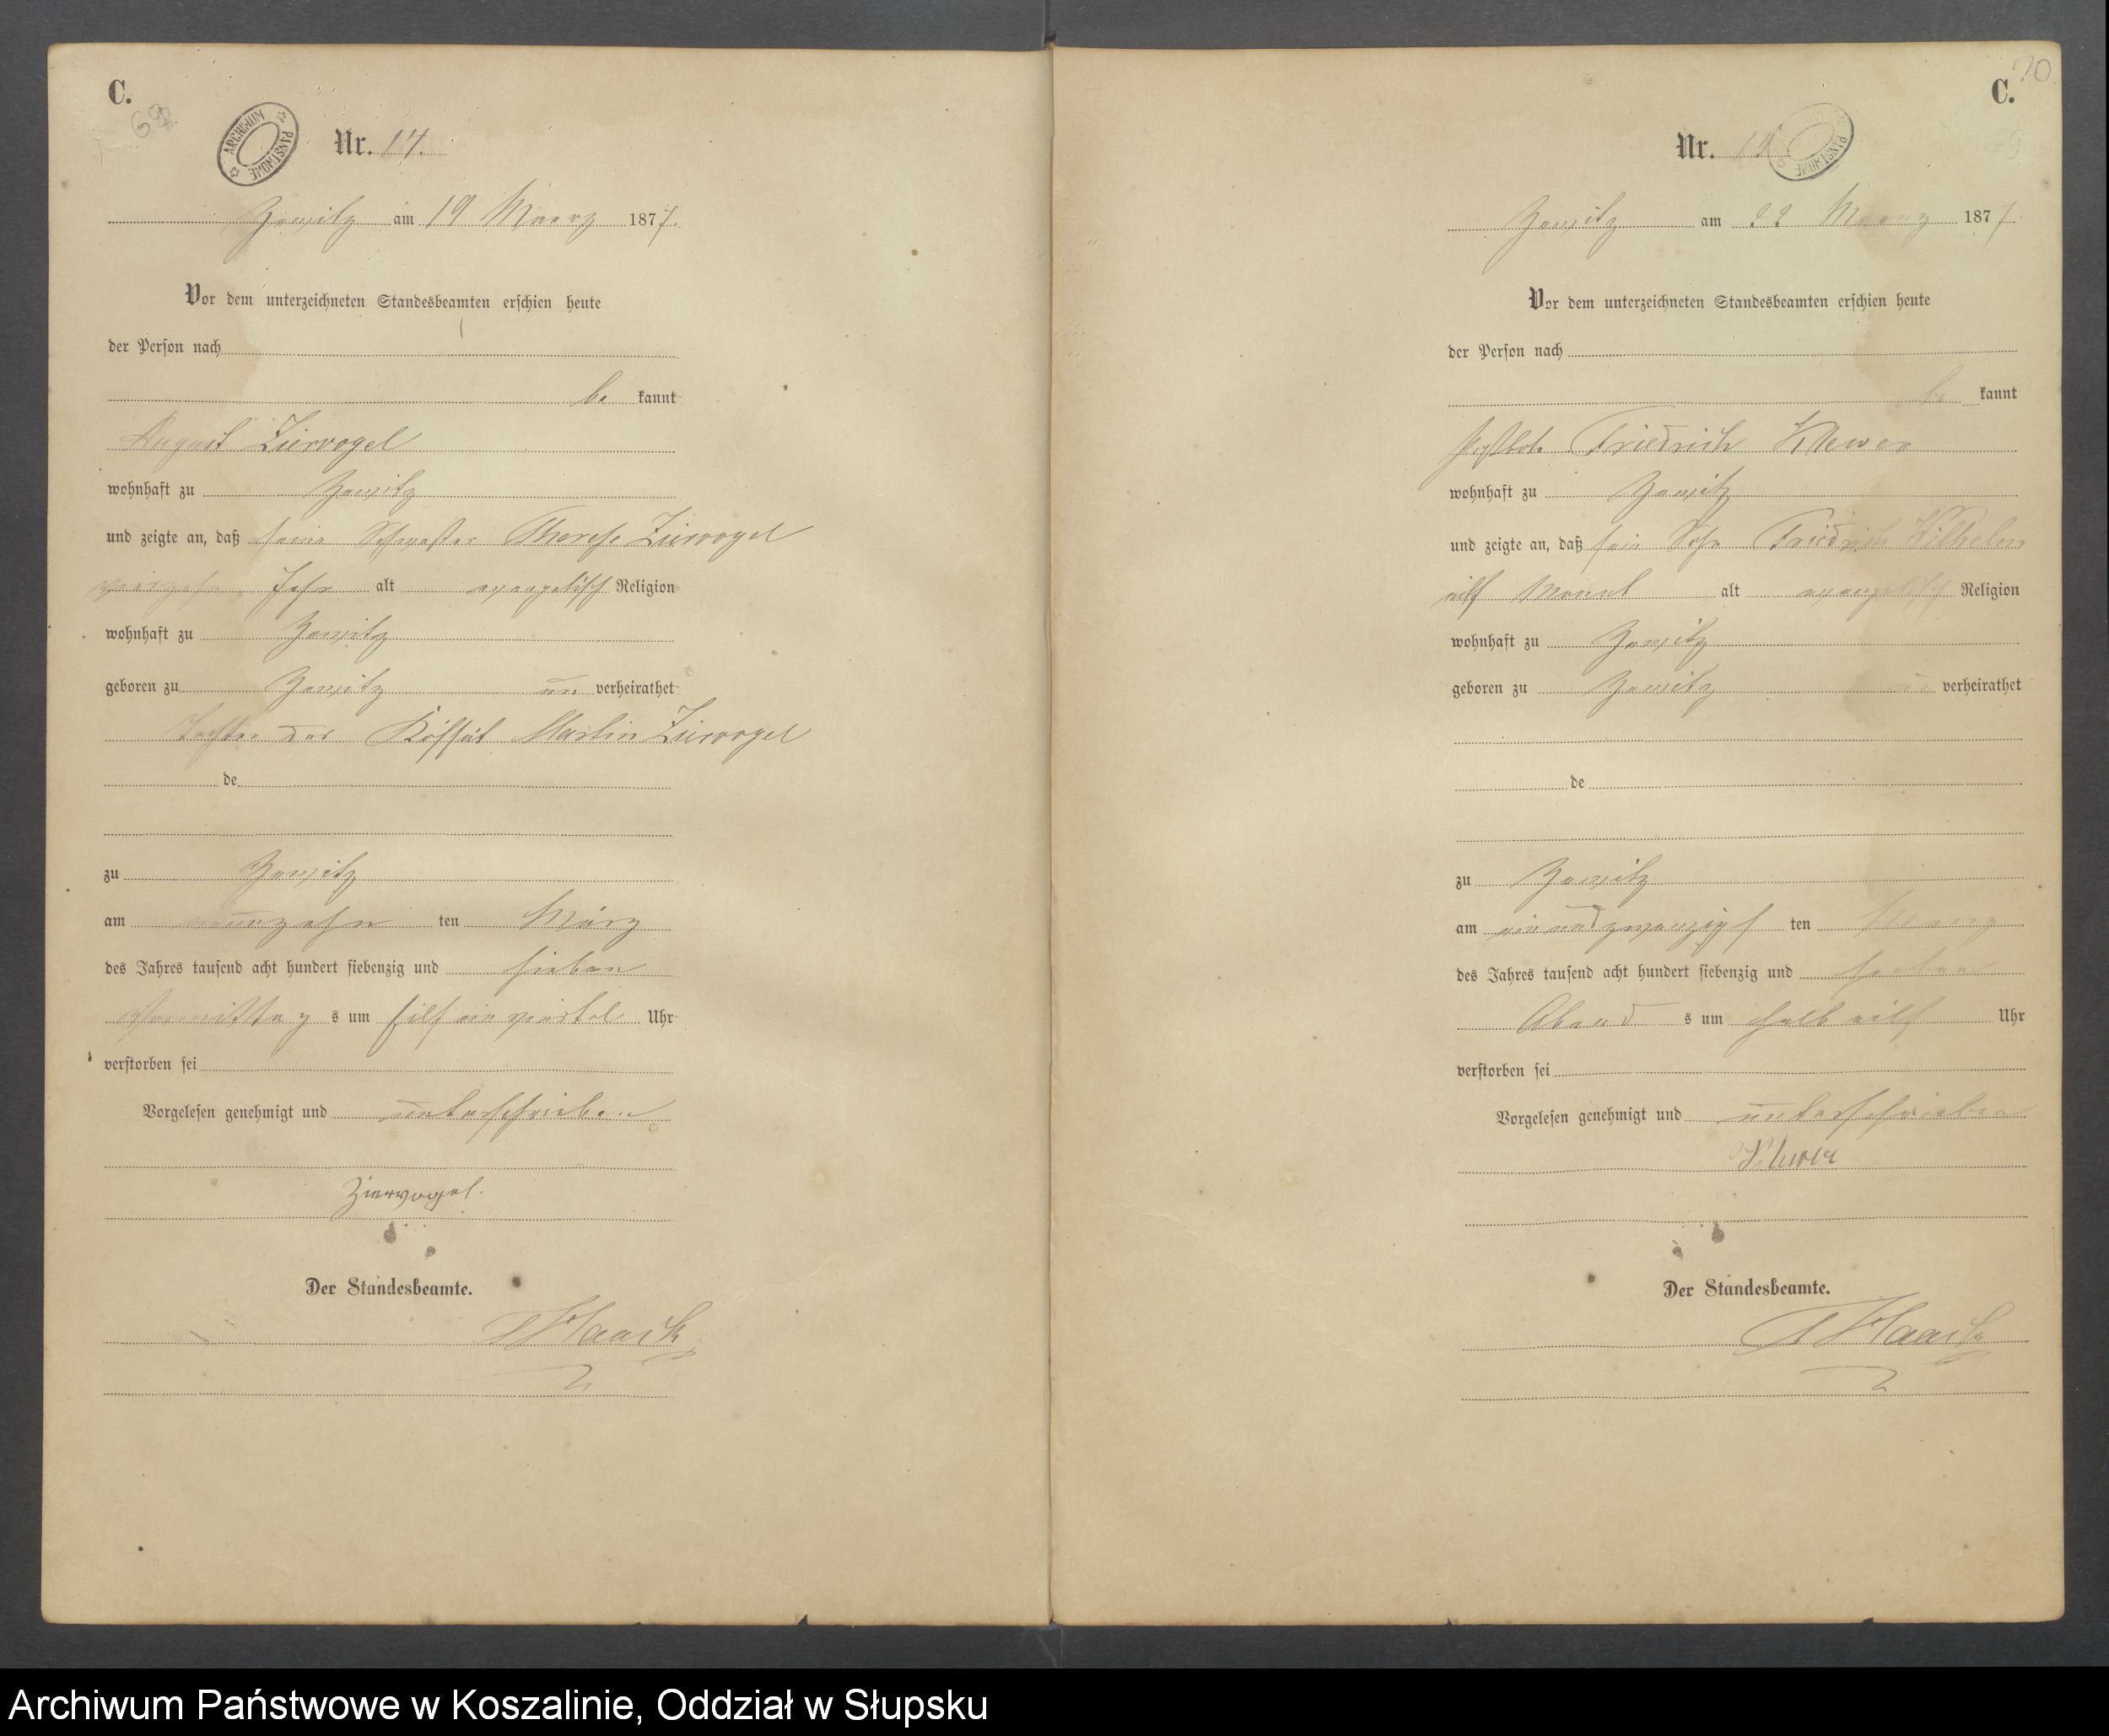 C.
69
ARCHIWUM PAŃSTWOWE
Nr. 14.
Zewitz am 19 Maerz 1877.
Vor dem unterzeichneten Standesbeamten erschien heute
der Person nach
be kannt
August Ziervogel
wohnhaft zu Zewitz
und zeigte an, daß seine Schwester Therese Ziervogel
vierzehn Jahr alt evangelisch Religion
wohnhaft zu Zewitz
geboren zu Zewitz un verheirathet
Tochter des Kossät Martin Ziervogel
de
zu Zewitz
am neunzehn ten März
des Jahres tausend acht hundert siebenzig und sieben
Vormittag s um ein viertel Uhr
verstorben sei
Vorgelesen genehmigt und unterschrieben
Ziervogel.
Der Standesbeamte.
Haack
C.
Nr.
PAŃSTWOWE
Zewitz am 22 Maerz 1877
Vor dem unterzeichneten Standesbeamten erschien heute
der Person nach
be kannt
Friedrich Klewer
wohnhaft zu Zewitz
und zeigte an, daß sein Sohn Friedrich Wilhelm
eilf Monat alt evangelisch Religion
wohnhaft zu Zewitz
geboren zu Zewitz un verheirathet
de
zu Zewitz
am ein und zwanzigs ten Maerz
des Jahres tausend acht hundert siebenzig und sieben
Abend s um halb eilf Uhr
verstorben sei
Vorgelesen genehmigt und unterschrieben
Klewer
Der Standesbeamte.
Haack
Archiwum Państwowe w Koszalinie, Oddział w Słupsku